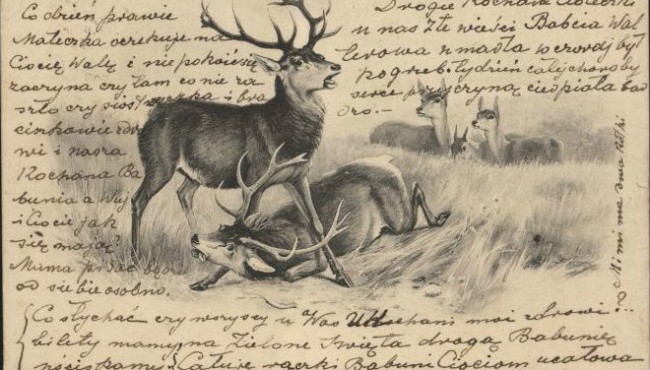 Co dzień prawie
Mateczka oczekuje na
Ciocię Walę i nie pokoić się
zaczyna czy tam co nie za
szło czy siostrzyczka i bra
ciszkowie zdro
wi i nasza
Kochana Ba
bunia a Wuj
i Ciocie jak
się mają?
Mama pisać będzie
od siebie osobno.
Drogie Kochane Cioteczki
u nas złe wieści Babcia Wal
lerowa zmadła wczoraj był
pogrzeb tydzień całej choroby
serce przyczyną cierpiała bar
dzo.-
Mimi ma swa
Co słychać czy wszyscy u Was Ukochani moi zdrowi?..
bilety mamy na Zielone Święta drogą Babunię
uściskamy. Całuję rączki Babuni Ciociom ucałowa